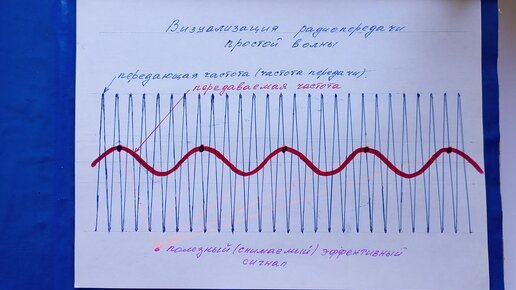 Визуализация радиопередачи
простой волны
передающая частота (частота передачи).
передаваемая частота
полезный (снимаемый) эффективный
сигнал